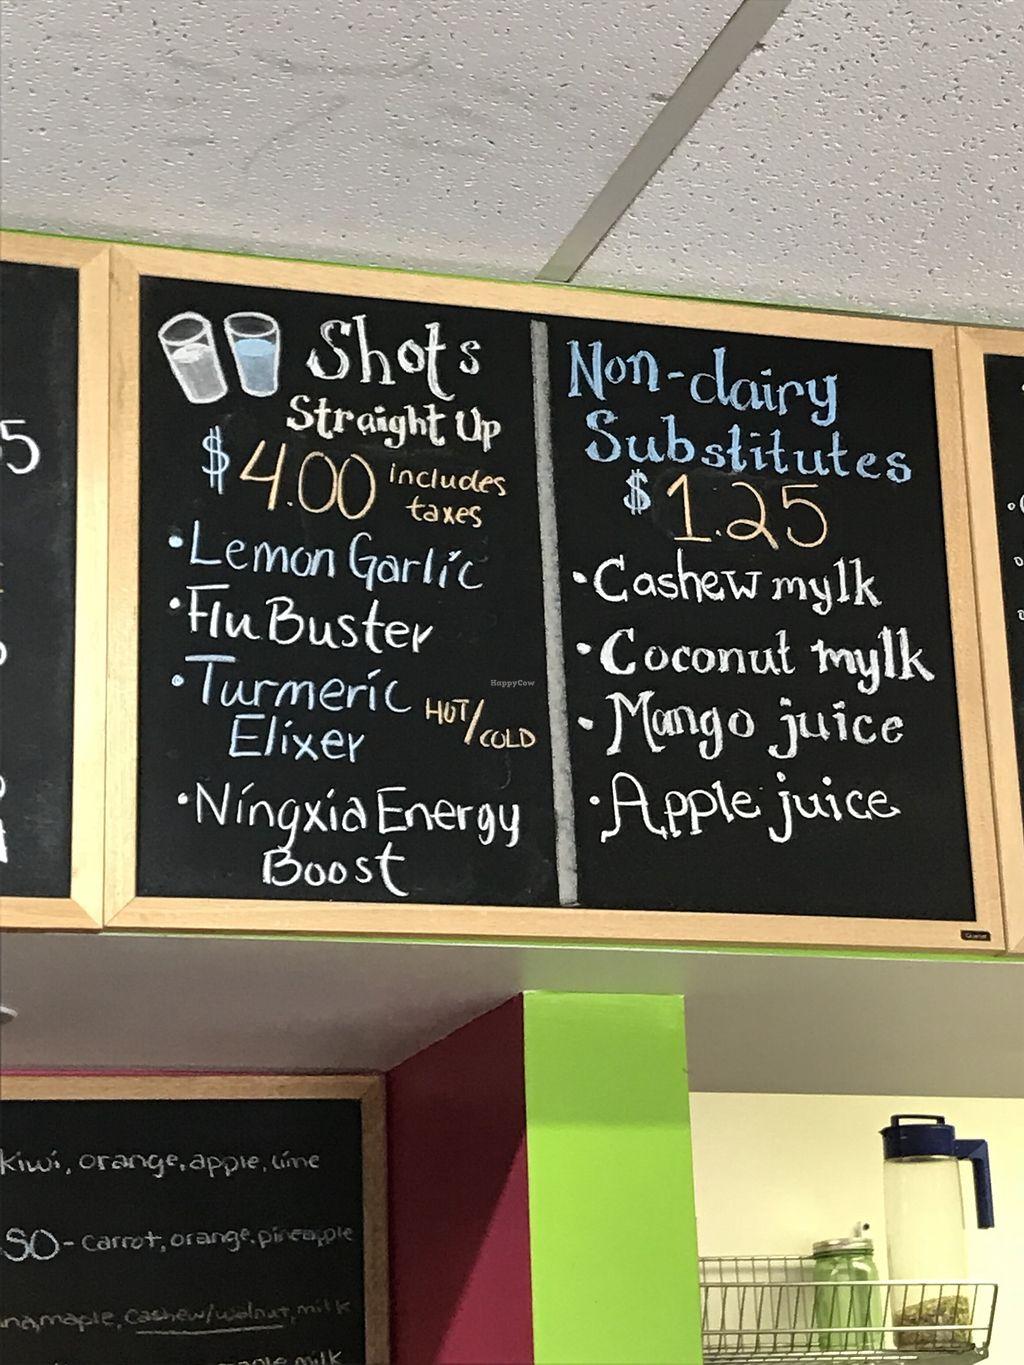 Shots
Straight Up
$4.00 includes
taxes
•Lemon Garlic
•Flu Buster
•Turmeric HOT/COLD
Elixer
•Ningxia Energy
Boost
Non-dairy
Substitutes
$1.25
•Cashew mylk
•Coconut mylk
•Mango juice
•Apple juice
HappyCow
5
kiwi, orange, apple, lime
SO - carrot, orange, pineapple
maple, cashew/walnut, milk
milk